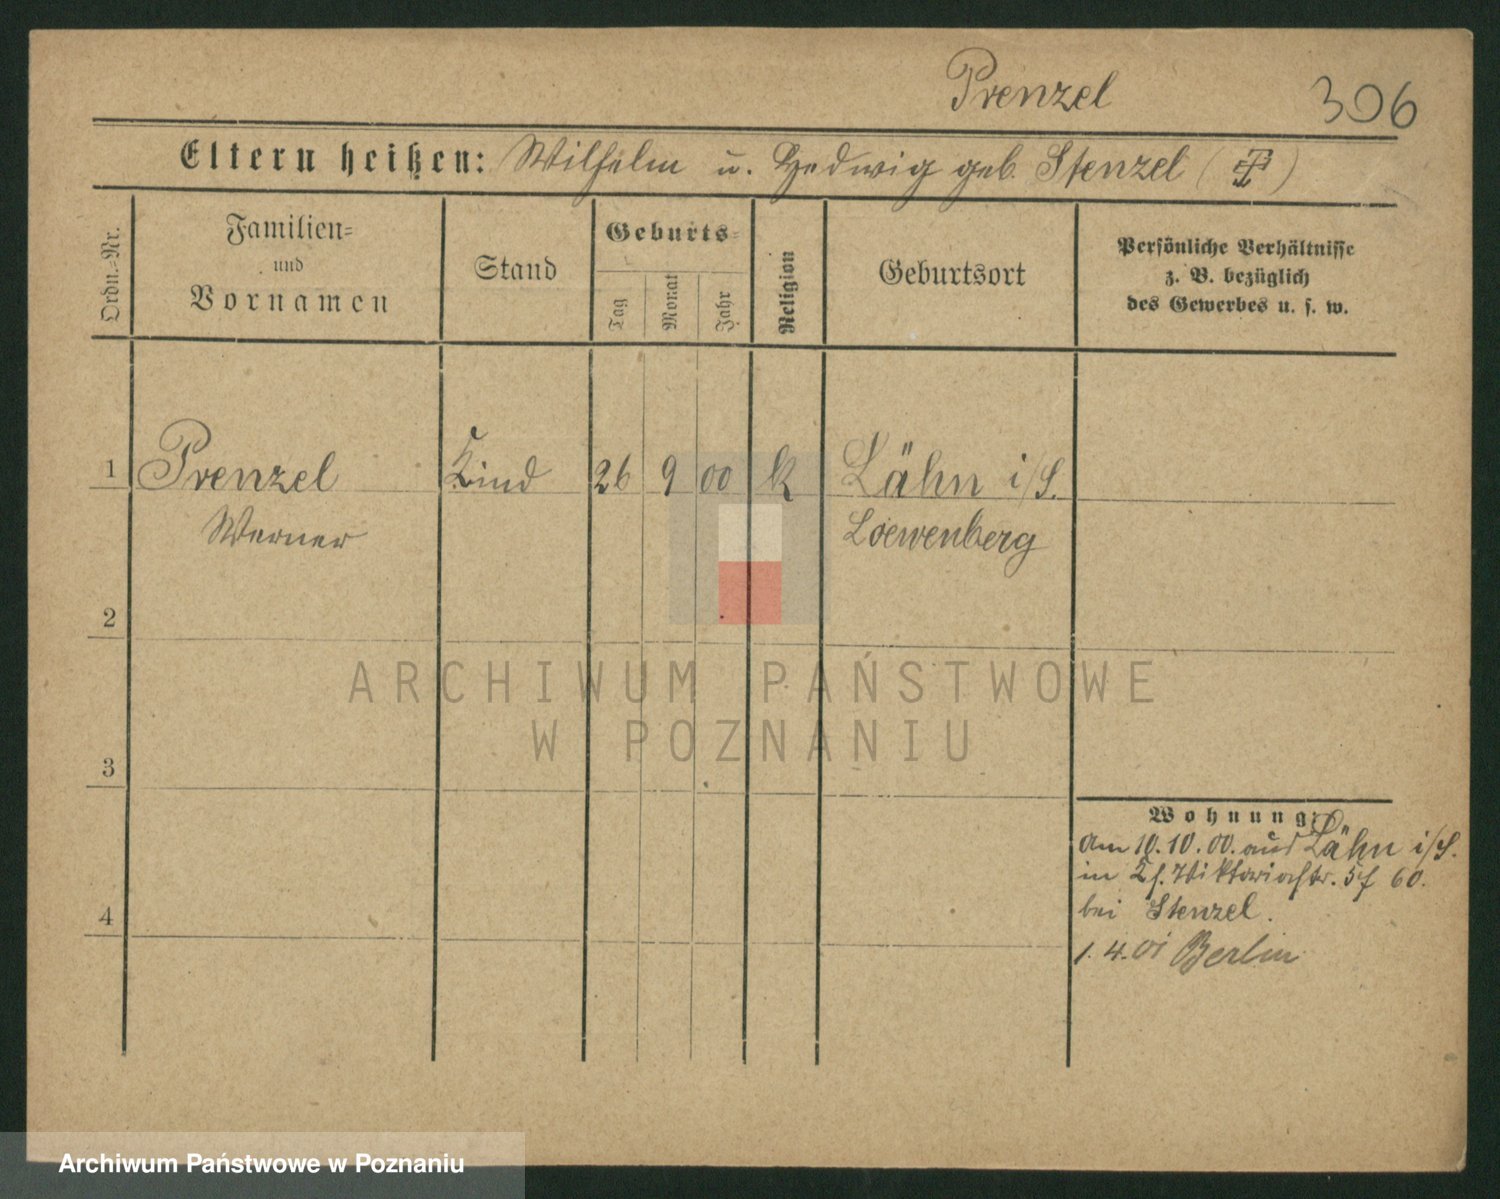 Prenzel
306
Eltern heißen: Wilhelm u. Hedwig geb. Stenzel
Ordn.-Nr.
Familien-
und
Vornamen
Stand
Geburts-
Tag
Monat
Jahr
Religion
Geburtsort
Persönliche Verhältnisse
z. B. bezüglich
des Gewerbes u. s. w.
1 Prenzel Kind 26 9 00 k Lähn i/S.
Werner Loewenberg
2
3
4
Wohnung:
Am 10.10.00. aus Lähn i/S.
in Viktoriastr. 60.
bei Stenzel.
1.4.01 Berlin
ARCHIWUM PAŃSTWOWE
W POZNANIU
Archiwum Państwowe w Poznaniu